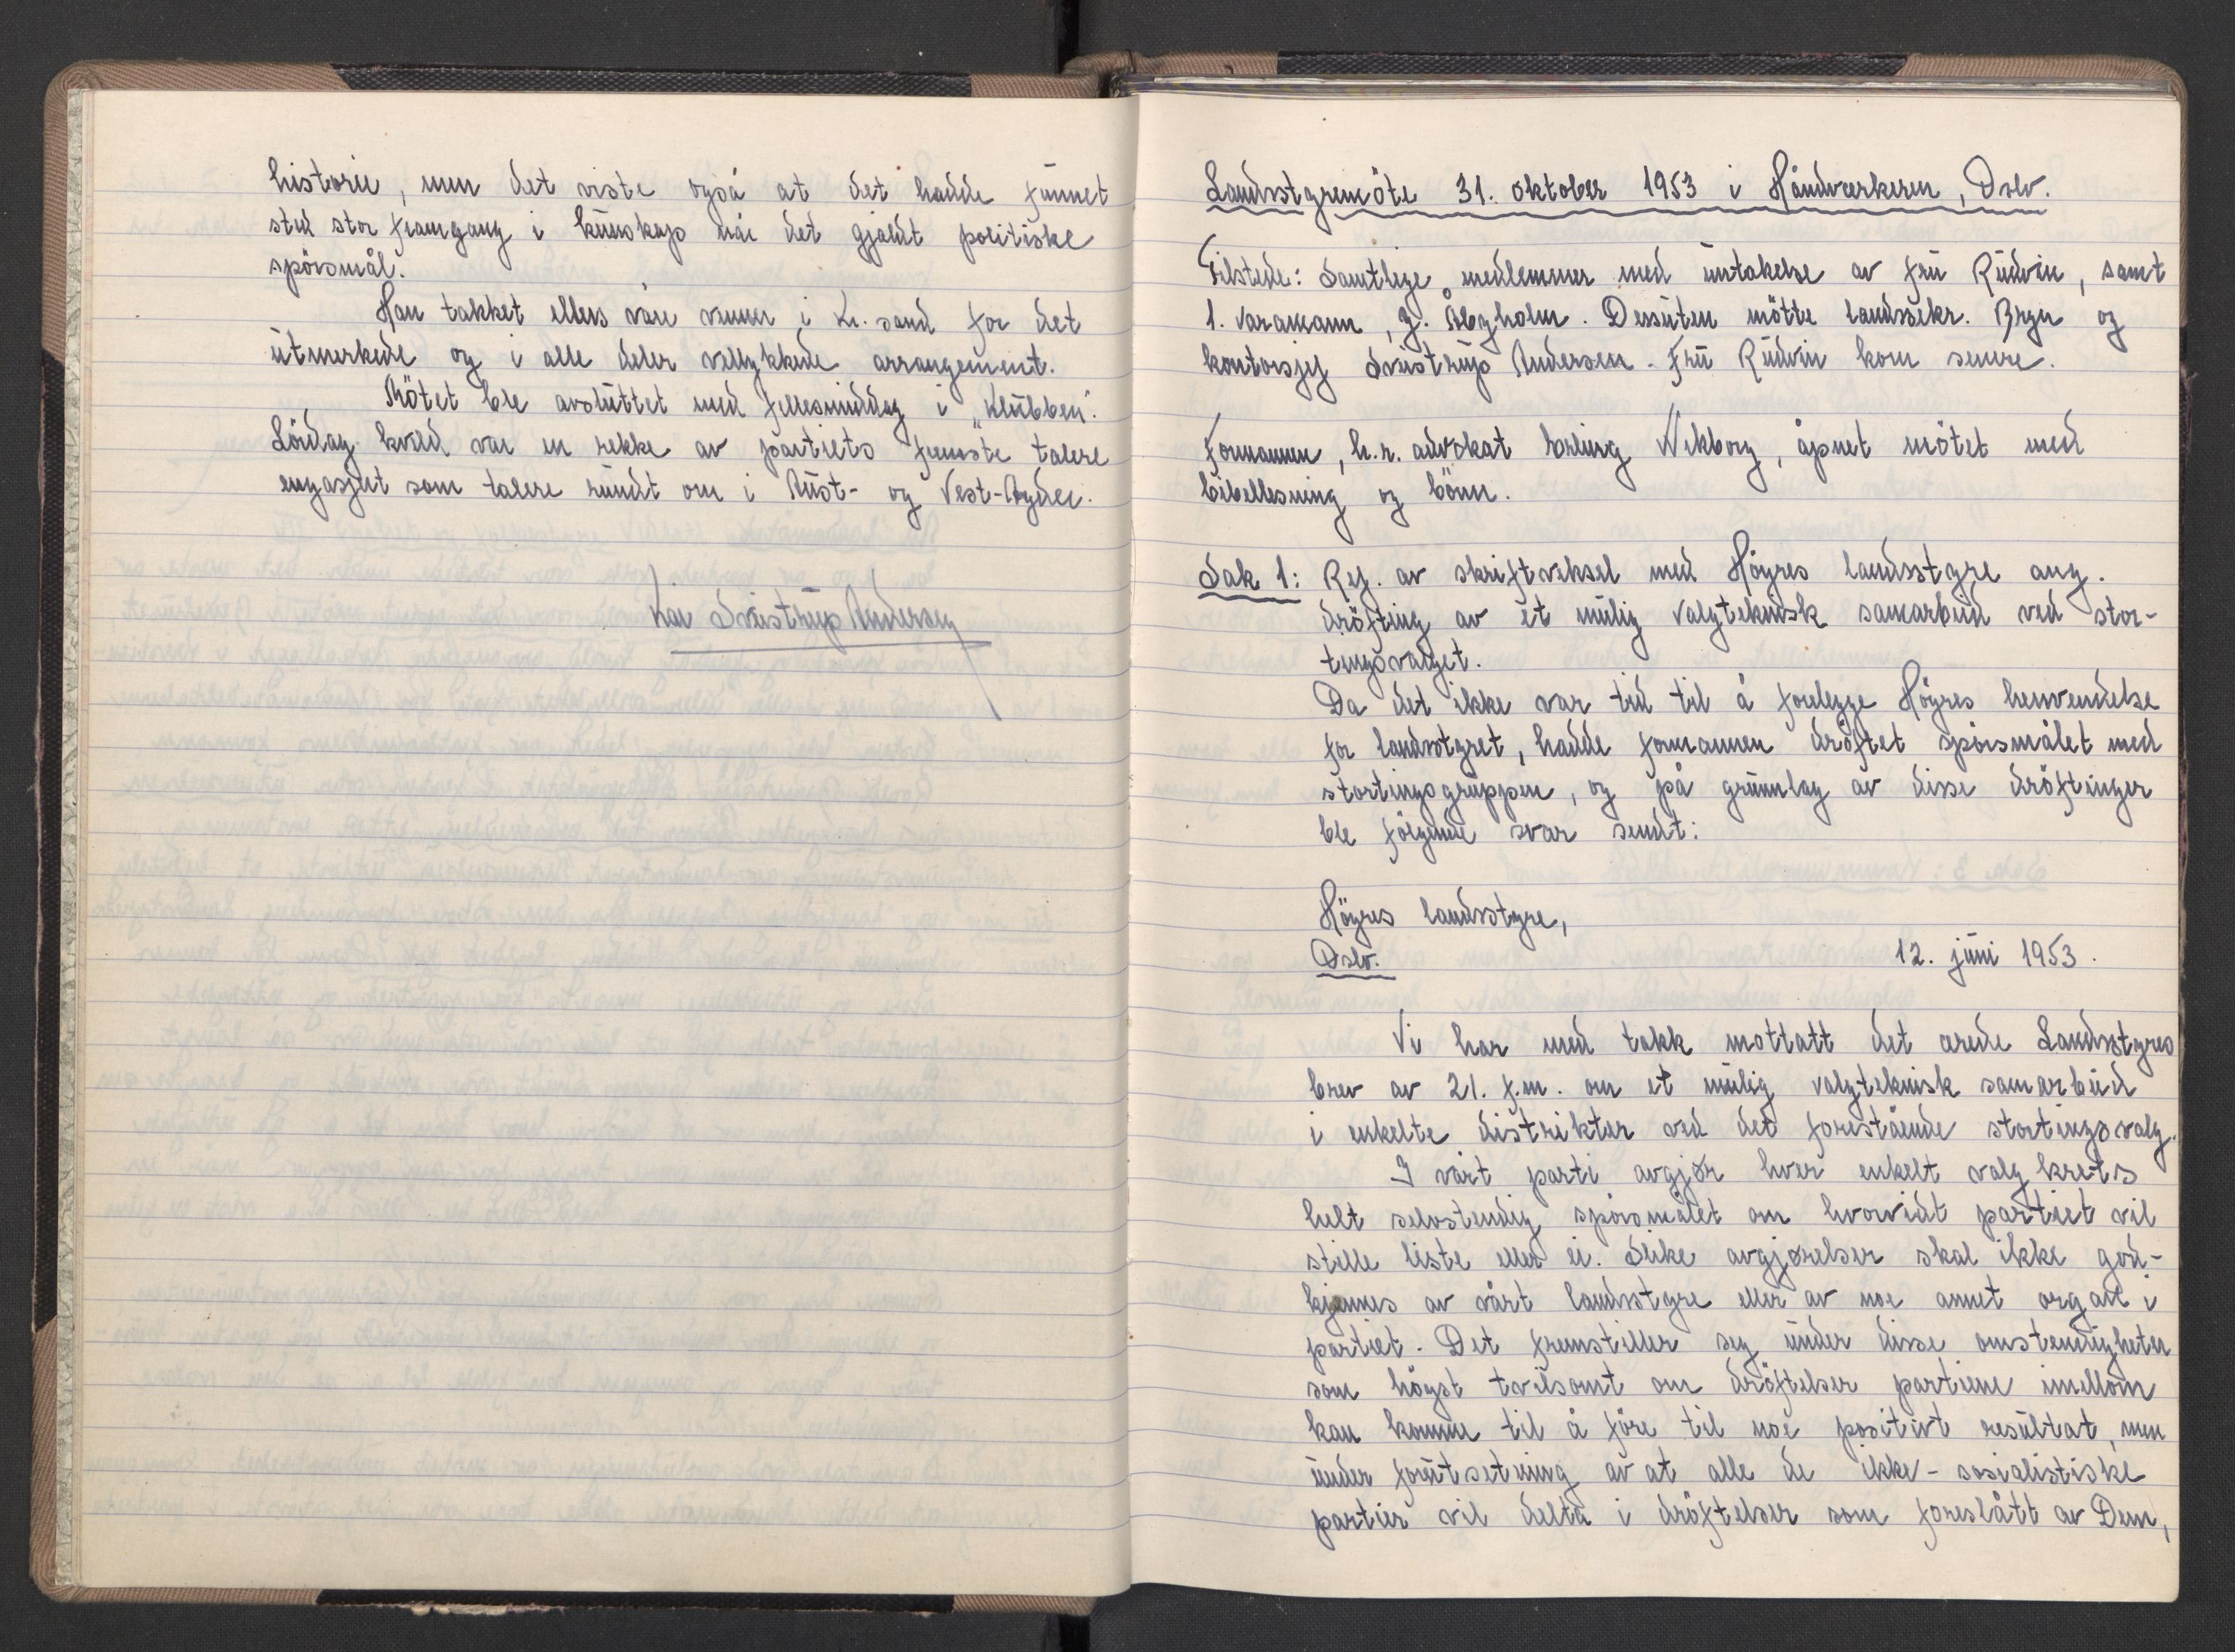 historie, men det viste også at det hadde funnet
sted stor framgang i kunnskap når det gjaldt politiske
spörsmål.
Han takket ellers våre venner i Kr. sand for det
utmerkede og i alle deler vellykkede arrangement.
Mötet ble avsluttet med fellesmiddag i „Klubben".
Lördag kveld var en rekke av partiets fremste talere
engasjert som talere rundt om i Aust- og Vest-Agder.
Kåre Sveistrup Andersen
Landsstyremöte 31. oktober 1953 i Håndverkeren, Oslo.
Tilstede: Samtlige medlemmer med untakelse av fru Rudvin, samt
1. varamann, J. Åbyholm. Dessuten mötte landssekr. Bryn og
kontorsjef Sveistrup Andersen. Fru Rudvin kom senere.
Formannen, h.r. advokat Erling Wikborg, åpnet mötet med
bibellesning og bönn.
Sak 1: Ref. av skriftveksel med Höyres landsstyre ang.
dröfting av et mulig valgteknisk samarbeid ved stor-
tingsvalget.
Da det ikke var tid til å forelegge Höyres henvendelse
for landsstyret, hadde formannen dröftet spörsmålet med
stortingsgruppen, og på grunnlag av disse dröftinger
ble fölgende svar sendt:
Höyres landsstyre,
Oslo. 12. juni 1953.
Vi har med takk mottatt det ærede Landsstyres
brev av 21. f.m. om et mulig valgteknisk samarbeid
i enkelte distrikter ved det forestående stortingsvalg.
I vårt parti avgjør hver enkelt valgkrets
helt selvstendig spörsmålet om hvorvidt partiet vil
stille liste eller ei. Slike avgjørelser skal ikke god-
kjennes av vårt landsstyre eller av noe annet organ i
partiet. Det fremstiller seg under disse omstendigheter
som högst tvilsomt om dröftelser partiene imellom
kan komme til å före til noe positivt resultat, men
under forutsetning av at alle de ikke-sosialistiske
partier vil delta i dröftelser som foreslått av Dem,